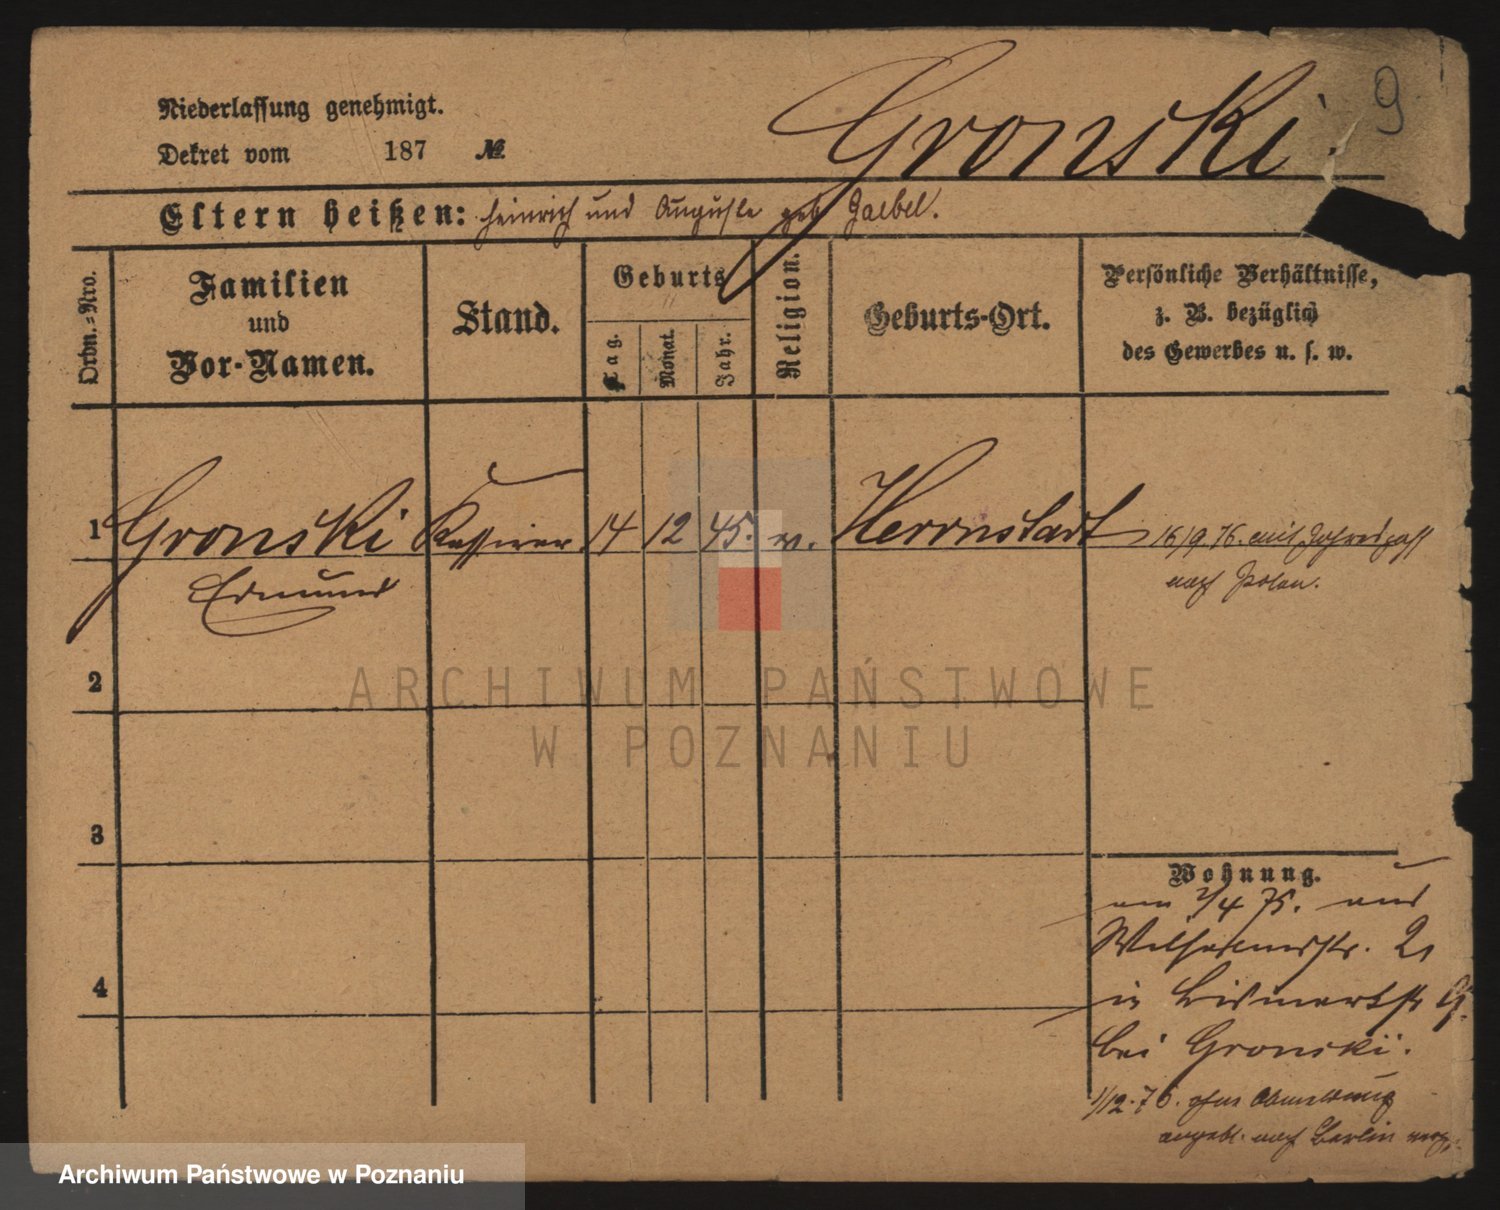 Niederlassung genehmigt.
Dekret vom 187 №
Gronski.
9
Eltern heißen: Heinrich und Auguste geb Gaebel.
Ordn.=Nro.
Familien
und
Vor-Namen.
Stand.
Geburts
Tag.
Monat.
Jahr.
Religion.
Geburts-Ort.
Persönliche Verhältnisse,
z. B. bezüglich
des Gewerbes u. s. w.
1 Gronski Kassirer 14 12 45. Herrnstadt 16/9. 76. mit Jahrespass
Edmund
nach Polen.
2
ARCHIWUM PAŃSTWOWE
W POZNANIU
3
Wohnung.
am 2/4 75. aus
Wilhelmstr. 21
in Bismarkstr 9.
4
bei Gronski.
1/12. 76. ohne Abmeldung
angebl. nach Berlin
Archiwum Państwowe w Poznaniu